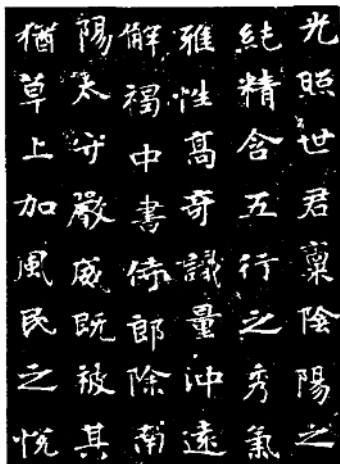 光照世君稟陰陽之
純精含五行之秀氣
雅性高奇識量沖遠
解褐中書侍郎除南
陽太守嚴威既被其
猶草上加風民之悅